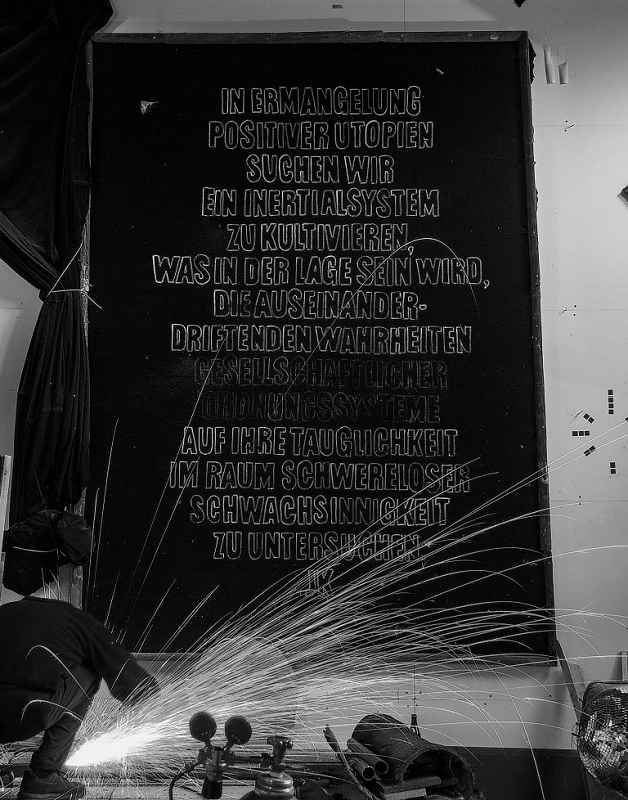 IN ERMANGELUNG
POSITIVER UTOPIEN
SUCHEN WIR
EIN INERTIALSYSTEM
ZU KULTIVIEREN,
WAS IN DER LAGE SEIN WIRD,
DIE AUSEINANDER-
DRIFTENDEN WAHRHEITEN
GESELLSCHAFTLICHER
ORDNUNGSSYSTEME
AUF IHRE TAUGLICHKEIT
IM RAUM SCHWERELOSER
SCHWACHSINNIGKEIT
ZU UNTERSUCHEN